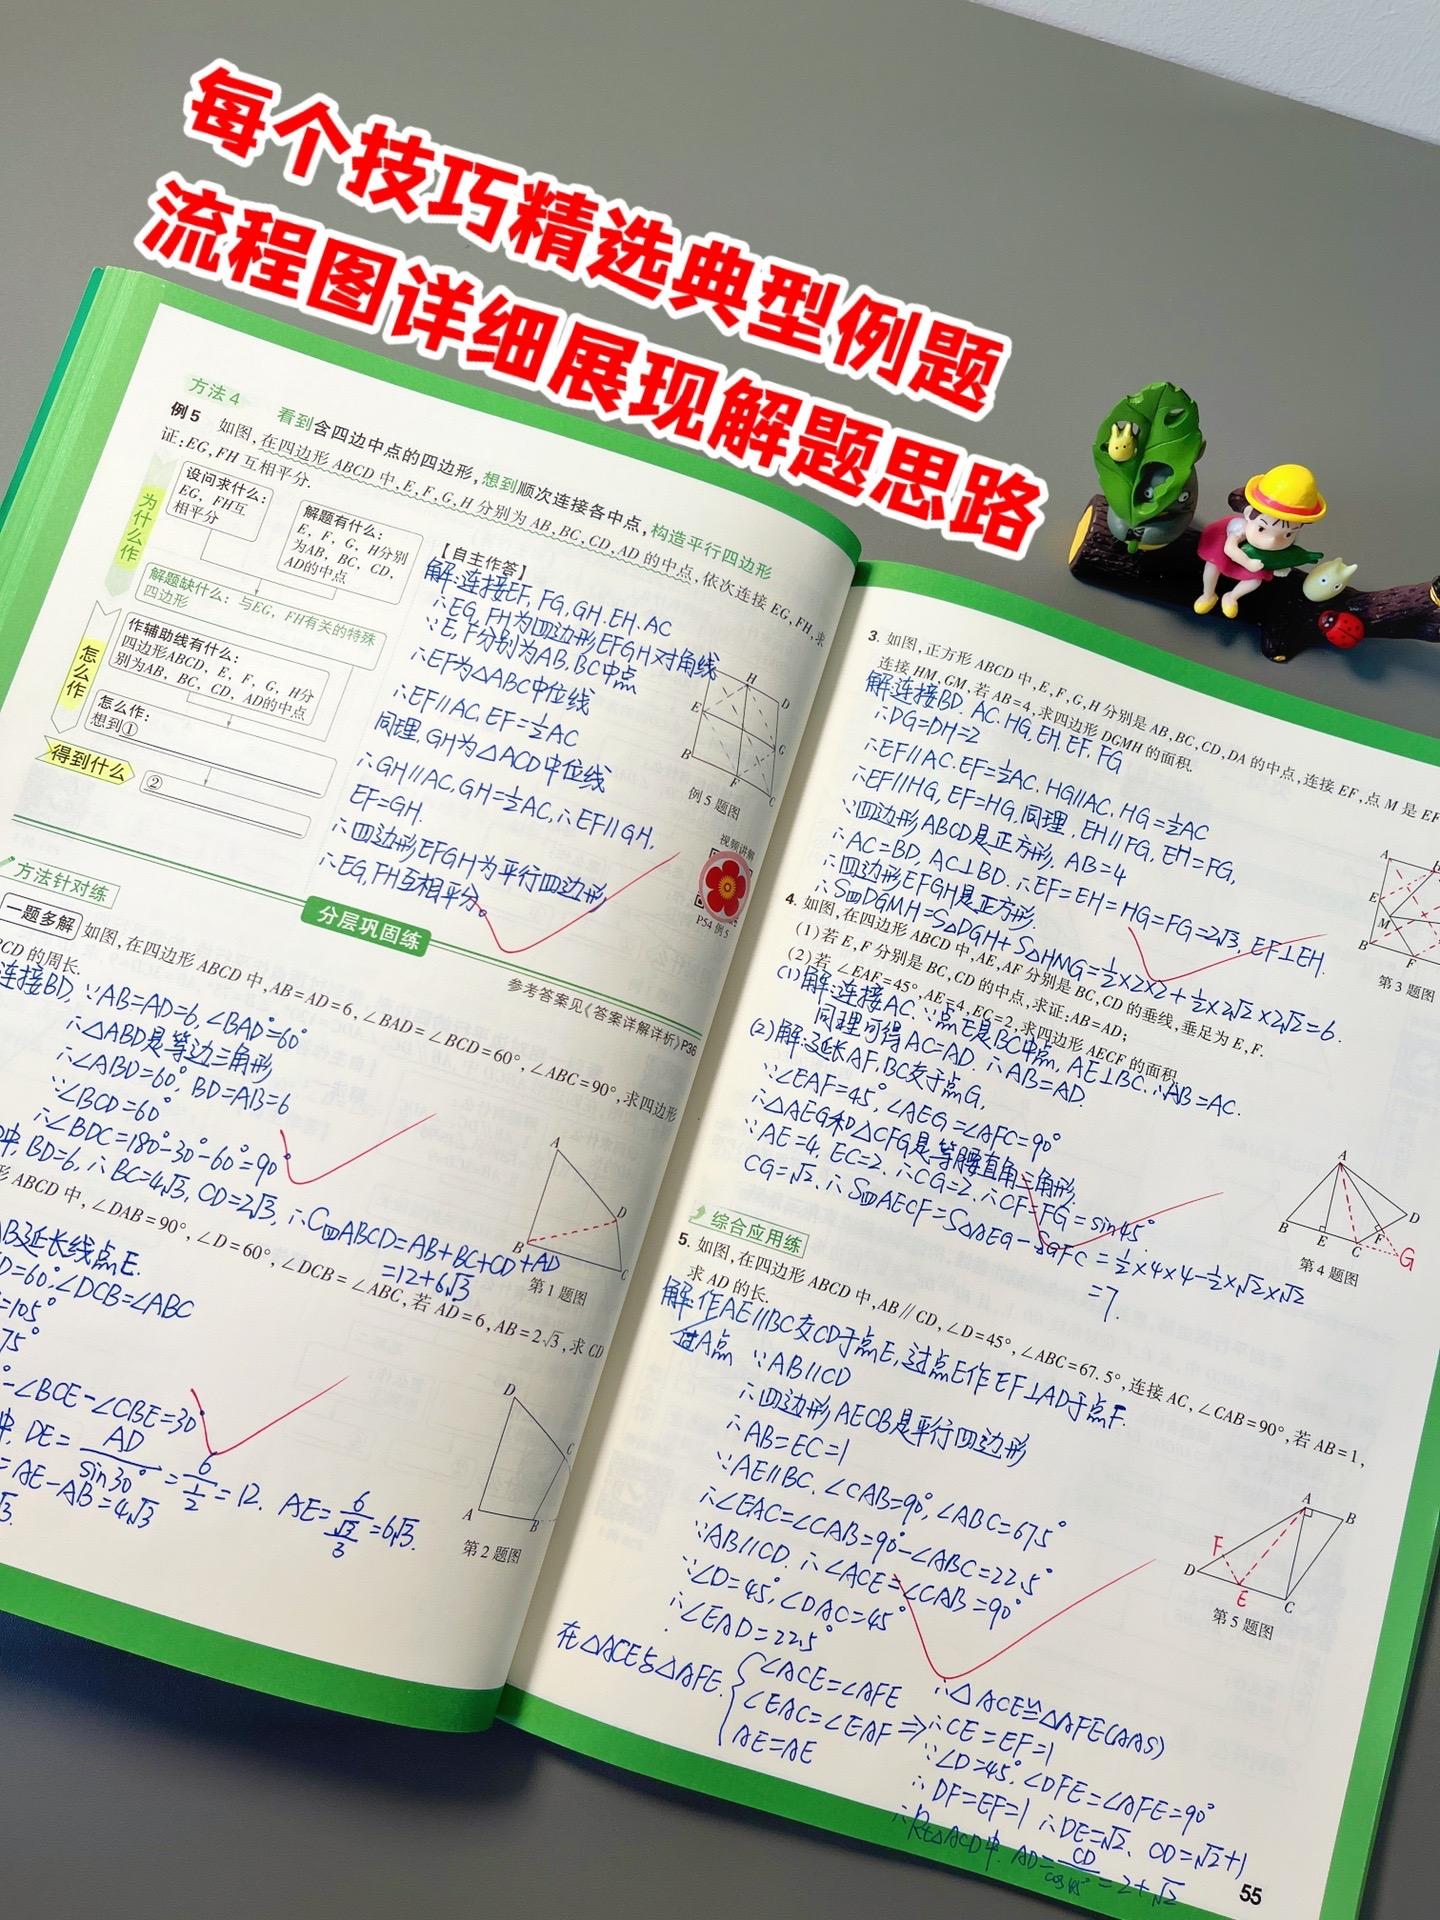 每个技巧精选典型例题
流程图详细展现解题思路
方法4 看到含四边中点的四边形,想到顺次连接各中点,构造平行四边形
例5 如图,在四边形ABCD中,E,F,G,H分别为AB,BC,CD,AD的中点,依次连接EG,FH,求
证:EG,FH互相平分.
为什么作
设问求什么:
EG,FH互
相平分
解题有什么:
E,F,G,H分别
为AB,BC,CD,
AD的中点
解题缺什么:与EG,FH有关的特殊
四边形
怎么作
作辅助线有什么:
四边形ABCD,E,F,G,H分
别为AB,BC,CD,AD的中点
怎么作:
想到①
得到什么
②
【自主作答】
解:连接EF,FG,GH,EH,AC
∴EG,FH为四边形EFGH对角线
∵E,F分别为AB,BC中点
∴EF为△ABC中位线
∴EF∥AC,EF=½AC
同理,GH为△ACD中位线
∴GH∥AC,GH=½AC,∴EF∥GH,
EF=GH.
∴四边形EFGH为平行四边形,
∴EG,FH互相平分。
H
D
E
G
B
F
C
例5题图
视频讲解
P54例5
方法针对练
分层巩固练
参考答案见《答案详解详析》P36
一题多解 如图,在四边形ABCD中,AB=AD=6,∠BAD=∠BCD=60°,∠ABC=90°,求四边形
BCD的周长.
连接BD.∵AB=AD=6,∠BAD=60°
∴△ABD是等边三角形
∴∠ABD=60°,BD=AB=6
∵∠BCD=60°
∴∠BDC=180°-30°-60°=90°
中,BD=6,∴BC=4√3,CD=2√3,∴C四ABCD=AB+BC+CD+AD
=12+6√3
A
D
B
C
第1题图
形ABCD中,∠DAB=90°,∠D=60°,∠DCB=∠ABC,若AD=6,AB=2√3,求CD
AB延长线点E.
D=60°,∠DCB=∠ABC
=105°
75°
°-∠BCE-∠CBE=30°
中,DE=AD/sin30°=6/½=12. AE=6/(√3/3)=6√3.
=AE-AB=4√3
√3.
D
C
A
B
第2题图
3. 如图,正方形ABCD中,E,F,G,H分别是AB,BC,CD,DA的中点,连接EF,点M是EF
连接HM,GM,若AB=4,求四边形DGMH的面积.
解:连接BD,AC,HG,EH,EF,FG
∴DG=DH=2
∴EF∥AC,EF=½AC,HG∥AC,HG=½AC
∴EF∥HG,EF=HG,同理,EH∥FG,EH=FG,
∵四边形ABCD是正方形,AB=4
∴AC=BD,AC⊥BD.∴EF=EH=HG=FG=2√3,EF⊥EH.
∴四边形EFGH是正方形.
∴S四DGMH=S△DGH+S△HNG=½×2×2+½×2√2×2√2=6.
A
E
M
B
F
第3题图
4. 如图,在四边形ABCD中,AE,AF分别是BC,CD的垂线,垂足为E,F.
(1)若E,F分别是BC,CD的中点,求证:AB=AD;
(2)若∠EAF=45°,AE=4,EC=2,求四边形AECF的面积.
(1)解:连接AC.∵点E是BC中点,AE⊥BC.∴AB=AC.
同理可得AC=AD.∴AB=AD.
(2)解:延长AF,BC交于点G,
∵∠EAF=45°,∠AEG=∠AFC=90°
∴△AEG和△CFG是等腰直角三角形.
∵AE=4,EC=2.∴CG=2.∴CF=FG=sin45°
CG=√2.∴S四AECF=S△AEG-SGFC=½×4×4-½×√2×√2
=7.
A
B
E
C
F
D
G
第4题图
综合应用练
5. 如图,在四边形ABCD中,AB∥CD,∠D=45°,∠ABC=67.5°,连接AC,∠CAB=90°,若AB=1,
求AD的长.
解:作AE∥BC交CD于点E,过点E作EF⊥AD于点F.
过A点 ∵AB∥CD
∴四边形AECB是平行四边形
∴AB=EC=1
∵AE∥BC.∠CAB=90°,∠ABC=67.5°
∴∠EAC=∠CAB=90°-∠ABC=22.5°
∵AB∥CD.∴∠ACE=∠CAB=90°
∵∠D=45°,∠DAC=45°
∴∠EAD=22.5°
在△ACE与△AFE.
∠ACE=∠AFE
∠EAC=∠EAF ⇒
AE=AE
∴△ACE≌△AFE(AAS)
∴CE=EF=1
∵∠D=45°,∠DFE=∠AFE=90°
∴DF=EF=1 ∴DE=√2, CD=√2+1
∴Rt△ACD中,AD=CD/cos45°=2+√2
A
B
F
D
E
C
第5题图
55